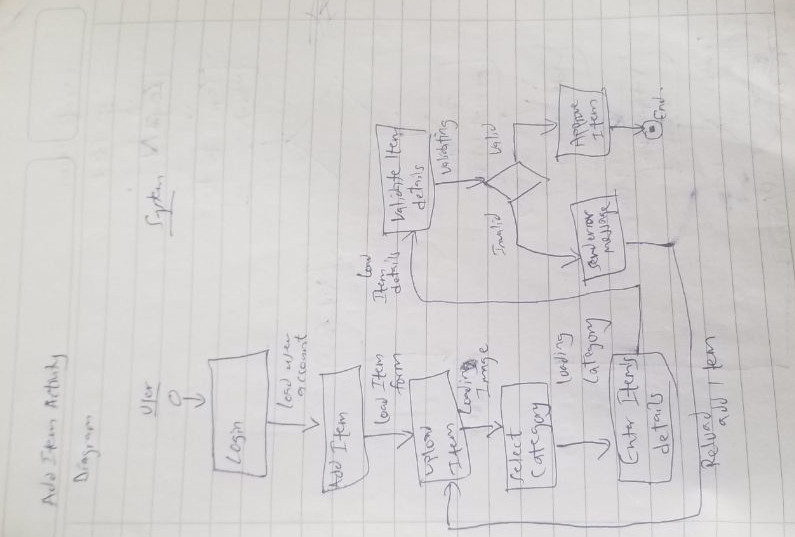 Add Item Activity
Diagram
User
System
Login
Load user
account
Add Item
Load Item
form
Upload
Item
Loading
Image
Select
Category
Loading
Category
Enter Items
details
Load
Item
details
Validate Item
details
Validating
Invalid
Valid
Send error
message
Approve
Item
End.
Reload
add Item